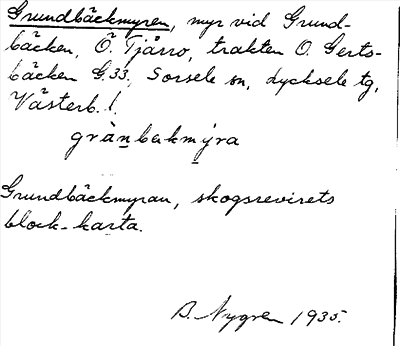 Grundbäckmyren, myr vid Grund-
bäcken, Ö. Tjärro, trakten O. Gerts-
bäcken G.33, Sorsele sn, Lycksele tg,
Västerb. l.
grànbækmýra
Grundbäckmyran, skogsrevirets
block-karta.
B. Nygren 1935.